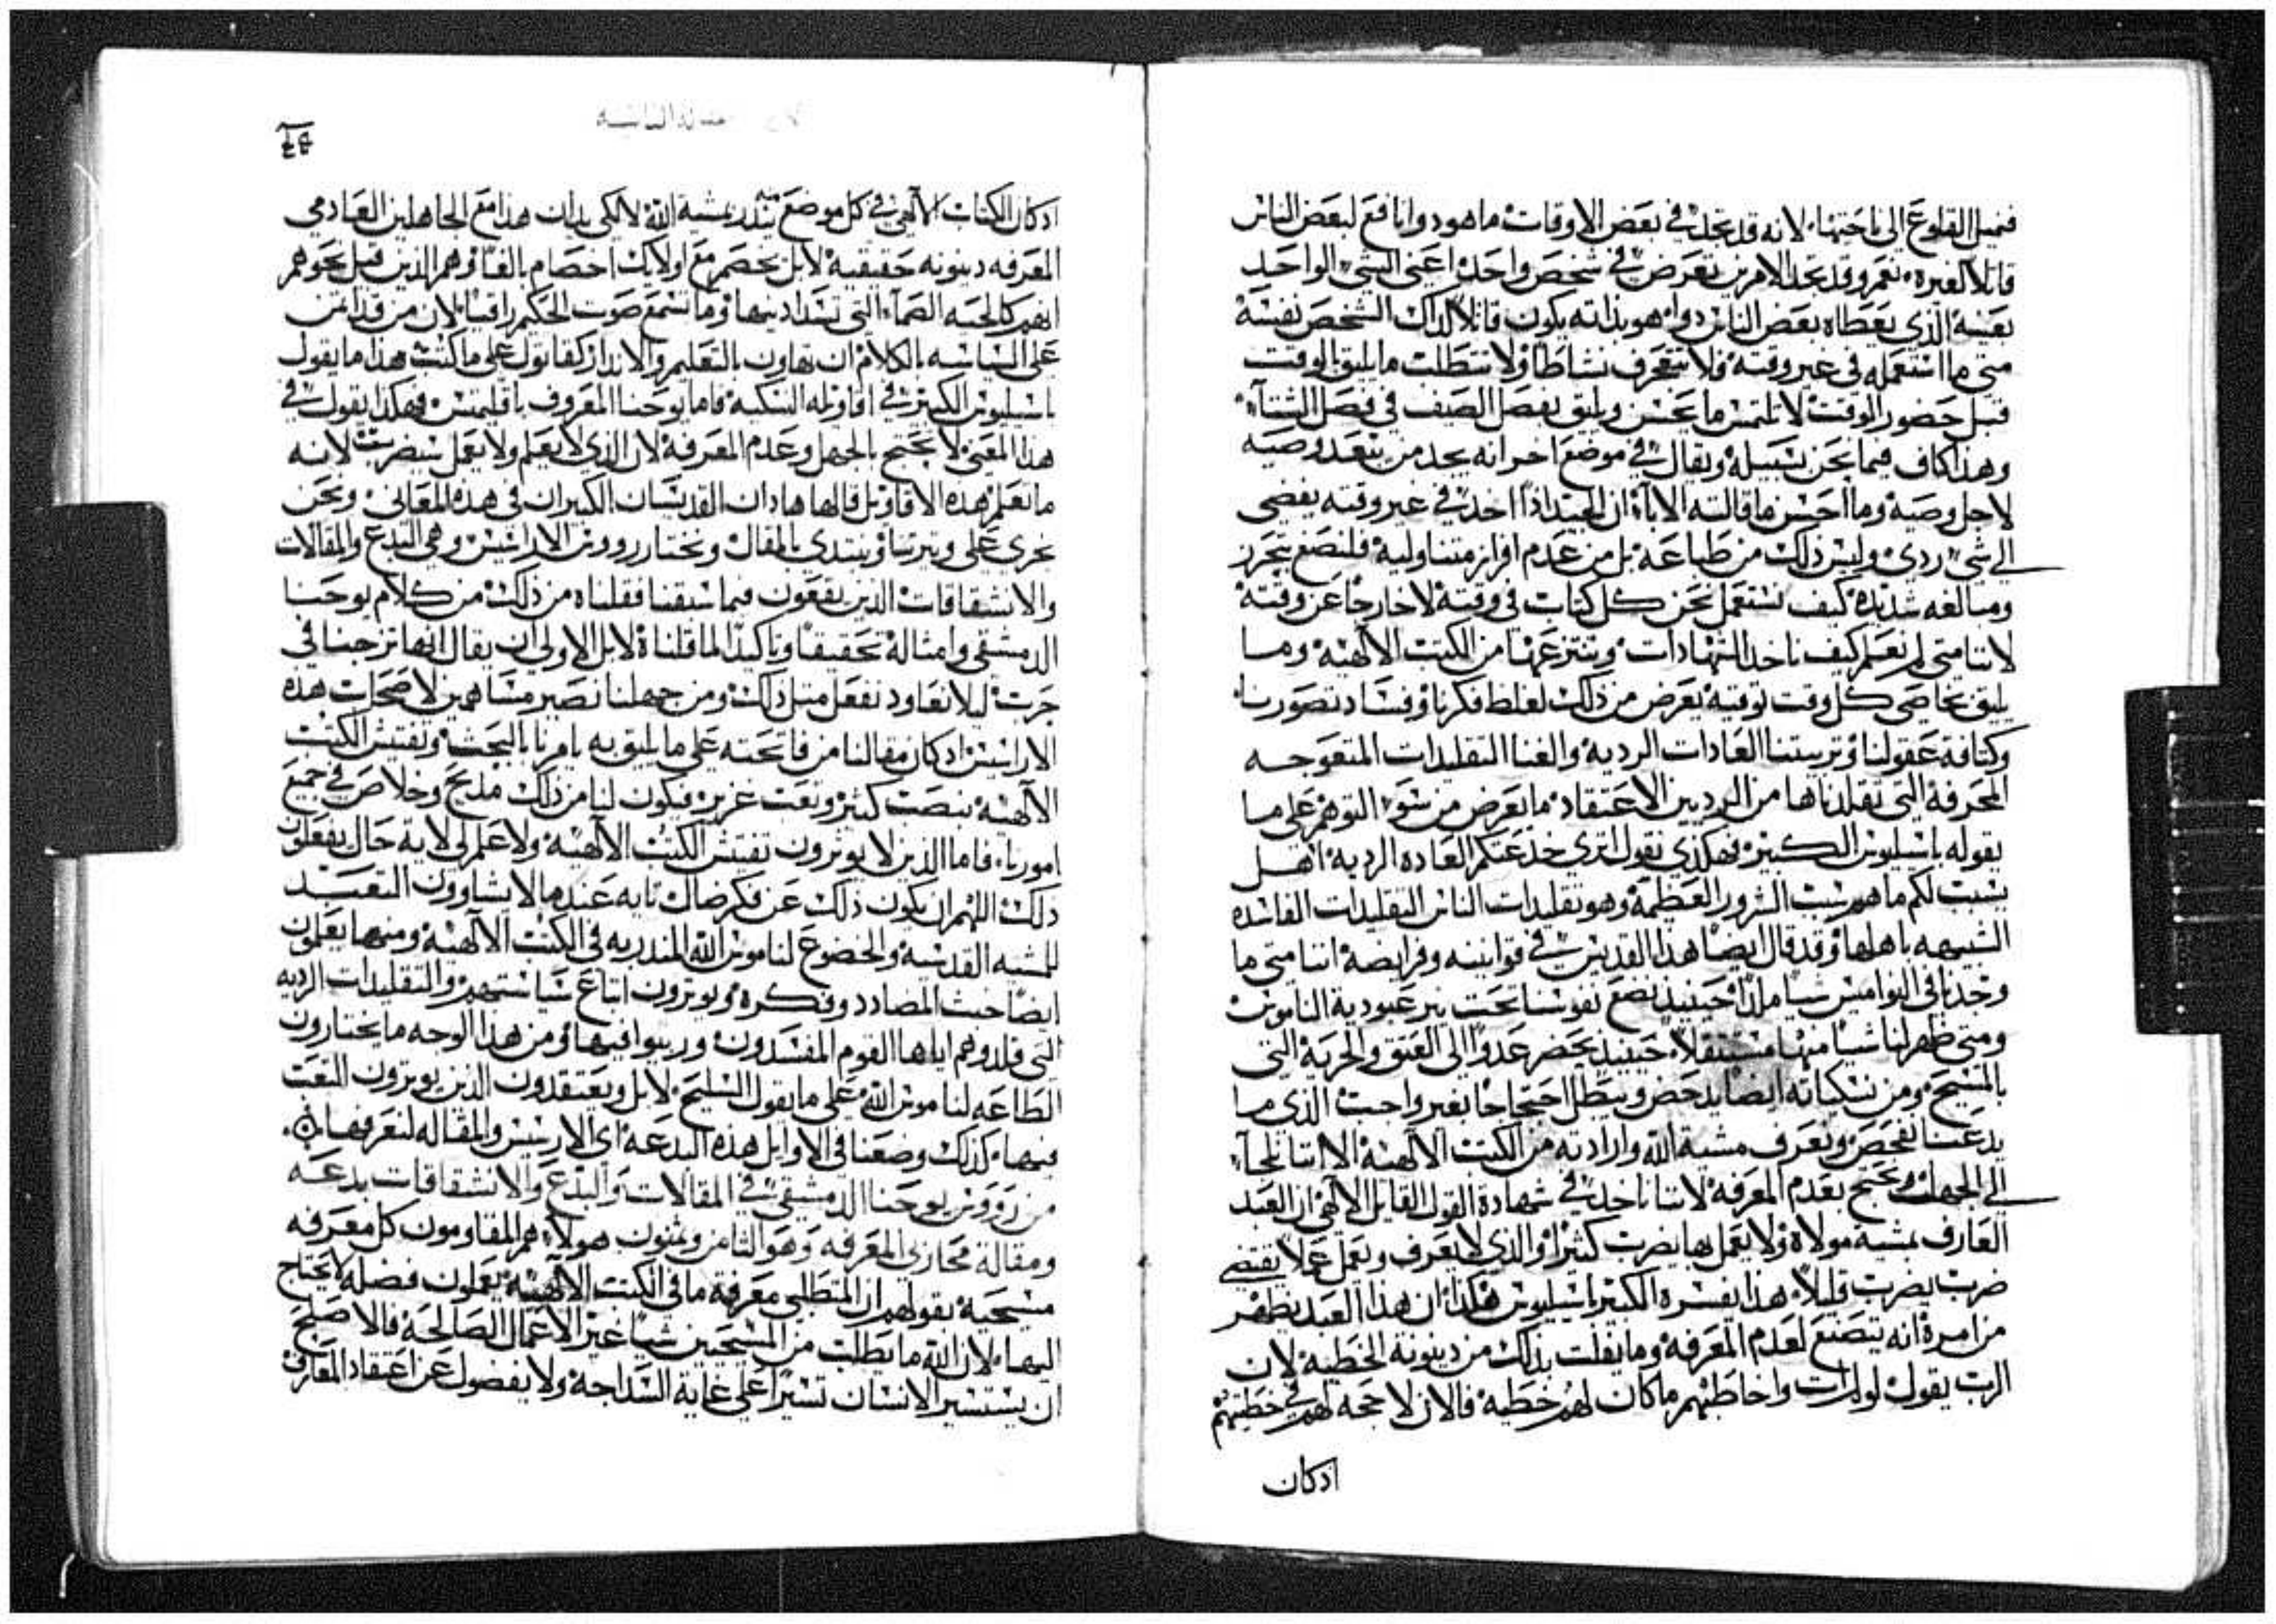 فنميل القلوع الى ناحيتها، لانه قد تجد في بعض الاوقات ما هو دوا نافع لبعض الناس
قاتلا لغيره، نعم وقد تجد الامرين تعرض في شخص واحد اعني الشي الواحد
بعينه الذي يعطاه بعض الناس دوا، هو بذاته يكون قاتلا لذاك الشخص نفسه
متى ما استعمله في غير وقته فلا تنحرف نشاطا ولا تتطلب ما يليق بالوقت
قبل حضور الوقت لا تلتمس ما يحسن ويليق بفصل الصيف في فصل الشتآ،
وهذا كاف فيما نحن بسبيله ويقال في موضع اخر انه يجد من يتعد وصيه
لاجل وصيه وما احسن ما قالته الابآ، ان الجيد اذا اخذ في غير وقته يفضي
الى شي ردي وليس ذلك من طباعه بل من عدم افراز متناوليه فلنصغ بتحرز
ومبالغه شديده كيف نستعمل نحن كل كتاب في وقته لا خارجا عن وقته
لاننا متى لم نعلم كيف ناخذ الشهادات وننتزعها من الكتب الالهيه وما
يليق بخاصي كل وقت توقيته يعرض من ذلك لغلط فكرنا وفساد تصورنا
وكثافة عقولنا وتربيتنا العادات الرديه والفنا التقليدات المتعوجه
المحرفة التي تقلدناها من الرديين الاعتقاد ما يعرض من سو التوهم على ما
يقوله باسيليوس الكبير فهكذي نقول اترى خدعتكم العاده الرديه اهل
يسبب لكم ما هو سبب الشرور العظيمة وهو تقليدات الناس التقليدات الفاسده
الشبيهه باهلها وقد قال ايضا هذا القديس في قوانينه وفرايضه اننا متى ما
وجدنا في النواميس شيا ملذا حينيذ نضع نفوسنا تحت نير عبودية الناموس
ومتى ظهر لنا شيا منها مستثقلا، حينيذ نحضر عدوا الى العتق والحرية التي
بالمسيح ومن نسكياته ايضا يدحض ويبطل احتجاجا بغير واجب الذي ما
يدعنا نفحص ونعرف مشية الله وارادته من الكتب الالهيه الا اننا نلجآ،
الى الجهل ونحتج بعدم المعرفة لاننا ناخذ في شهادة القول القايل الالهي ان العبد
العارف بمشية مولاه ولا يعمل بها يضرب كثيرا والذي لا يعرف ويعمل عملا يقتضي
ضرب يضرب قليلا، هذا يفسره الكبير باسيليوس هكذا ان هذا العبد يظهر
من امره انه يتصنع لعدم المعرفه وما يفلت بذلك من دينونة الخطية لان
الرب يقول لو لم ات واخاطبهم ما كان لهم خطية فالان لا حجه لهم في خطيتهم
ادكان
ادكان الكتاب الالهي في كل موضع منه ينذر بمشية الله لا لكي يدان هذا مع الجاهلين العادمي
المعرفه دينونه حقيقيه لا بل يخصم مع اولايك اخصام بالغا وهم الذين قيل نحوهم
انهم كالحيه الصمآء التي تسد اذنيها وما تسمع صوت الحكيم راقيا، لان من قد ايتمن
على السياسه بالكلام ان تهاون بالتعليم والانذار كقاتول على ما كتب هذا ما يقول
باسيليوس الكبير في اقاويله النسكيه فاما يوحنا المعروف باقليمقس فهكذا يقول في
هذا المعنى لا تحتج بالجهل وعدم المعرفة لان الذي لا يعلم ولا يعمل سيضرب لانه
ما تعلم هذه الاقاويل قالها هاذان القديسان الكبيران في هذه المعاني ونحن
نجري على وتيرتنا ونبتدي بالمقال ونختار رووس الاراسيس وهي البدع والمقالات
والانشقاقات الذين يقعون فيما سبقنا فقلناه من ذلك من كلام يوحنا
الدمشقي وامثاله تحقيقا وتاكيدا لما قلناه لا بل الاولى ان يقال انها تزجنا في
جرت ليلا نعاود نفعل مثل ذلك ومن جهلنا نصير مساهمين لاصحاب هذه
الاراسيس ادكان مقالنا من فاتحته على ما يليق به يامرنا بالبحث وتفتيش الكتب
الالهيه بنصب كثير وتعب غزير فيكون لنا من ذلك مديح وخلاص في جميع
امورنا، فاما الذين لا يوثرون تفتيش الكتب الالهيه ولا علم لي لاية حال يفعلون
ذلك اللهم ان يكون ذلك عن فكر ضال تايه عندما لا يشاوون التعبد
للمشيه القدسيه والخضوع لناموس الله المنذر به في الكتب الالهيه ومنهما يعلمون
ايضا خبث المضادد وفكره ويوثرون اتباع سياستهم والتقليدات الرديه
التي قلدوهم اياها القوم المفسدون وربيوا فيها ومن هذا الوجه ما يختارون
الطاعه لناموس الله على ما يقول السليح لا بل ويعتقدون الذين يوثرون التعب
فيها، كذلك وضعنا في الاوايل هذه البدعه اي الاريسيس والمقاله لتعرفها
من رووس يوحنا الدمشقي في المقالات والبدع والانشقاقات بدعه
ومقالة محاربي المعرفه وهو الثامن وثمنون هولآ، هم المقاومون كل معرفه
مسيحية بقولهم ان المتطلبي معرفة ما في الكتب الالهيه يعملون فضله لا يحتاج
اليها، لان الله ما يطلب من المسيحيين شيا غير الاعمال الصالحة فالاصلح
ان يستسير الانسان تسيرا على غاية السداجة ولا يفضول عن اعتقاد المعارف